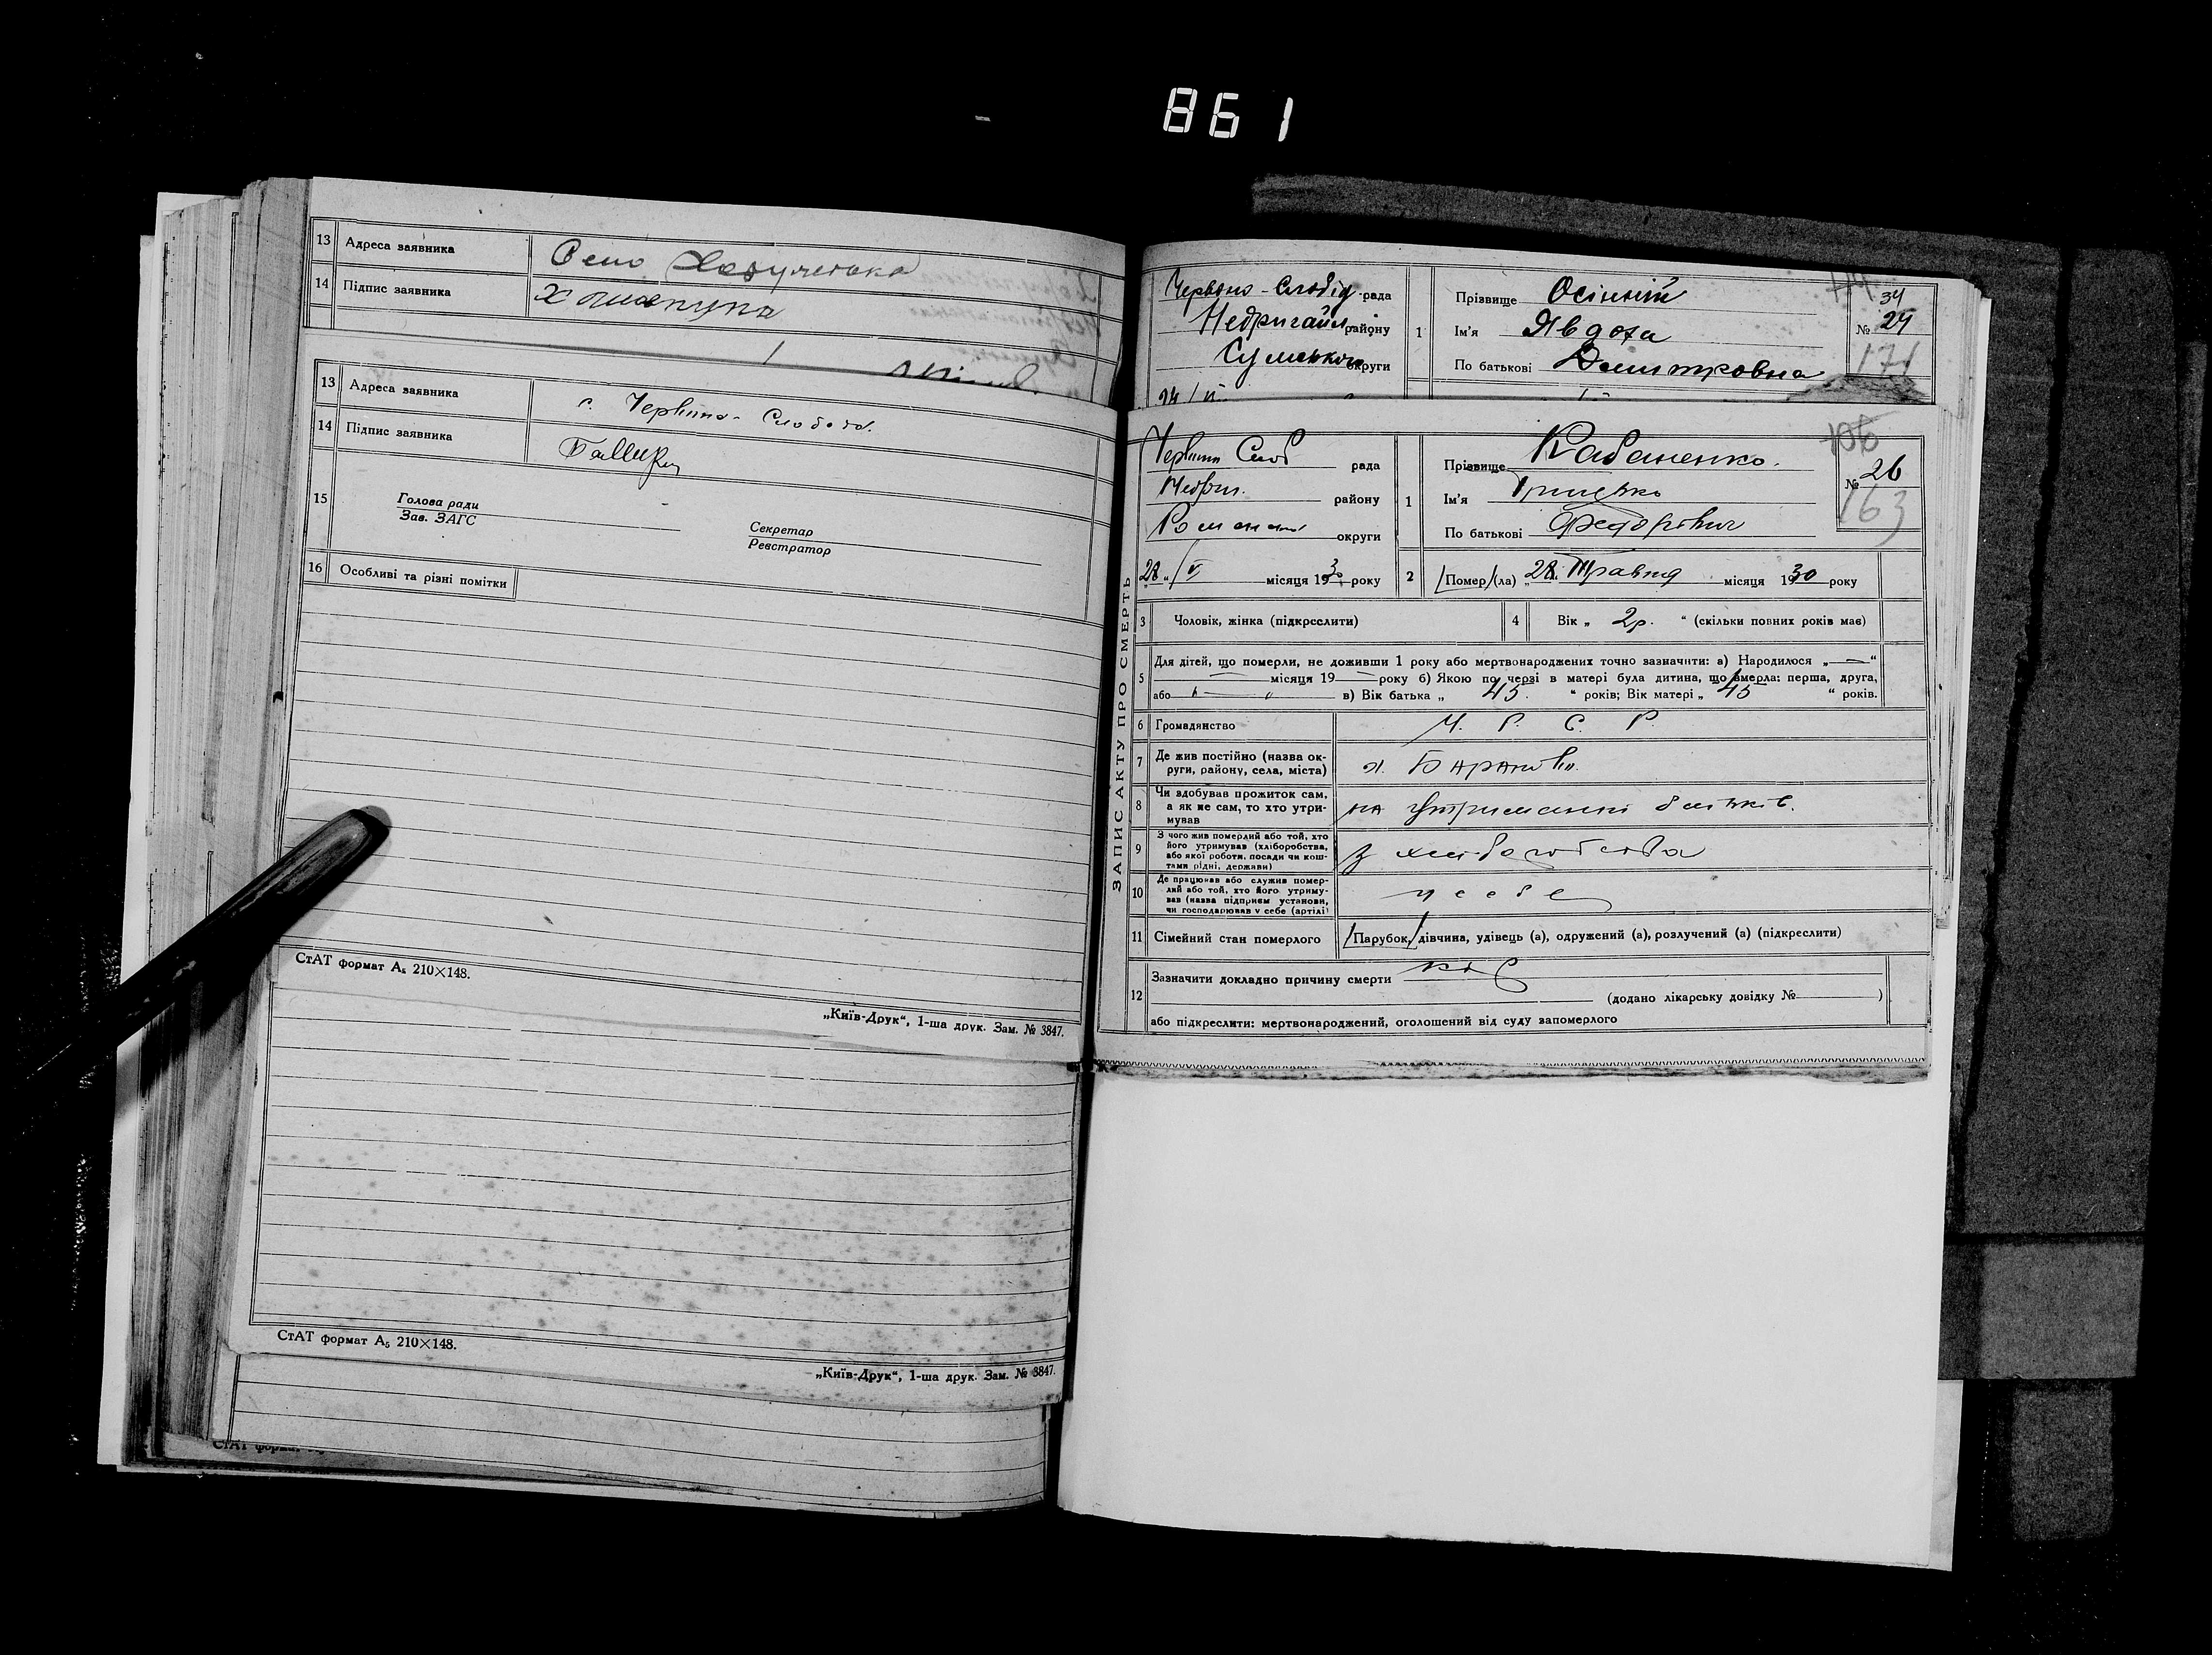 861
13 Адреса заявника Село
14 Підпис заявника
13 Адреса заявника с. Червона-Слобода.
14 Підпис заявника
15 Голова ради
Зав. ЗАГС
Секретар
Реєстратор
16 Особливі та різні помітки
СтАТ формат А₅ 210×148.
„Київ-Друк“, 1-ша друк. Зам. № 3847.
СтАТ формат А₅ 210×148.
„Київ-Друк“, 1-ша друк. Зам. № 3847.
СтАТ формат
Червоно-Слобід рада
Недригайл району
Сумської округи
1 Прізвище Осінній
Ім'я Явдоха
По батькові Дмитровна
34
№ 24
171
ЗАПИС АКТУ ПРО СМЕРТЬ
Червон Слоб рада
Недриг. району
Роменської округи
28 „/ V місяця 1930 року
1 Прізвище Кабаненко.
Ім'я Грицько
По батькові Федорович
106
№ 26
163
2 /Помер/(ла) „28„ Травня місяця 1930 року
3 Чоловік, жінка (підкреслити)
4 Вік „ 2р. “ (скільки повних років має)
5 Для дітей, що померли, не доживши 1 року або мертвонароджених точно зазначити: а) Народилося „—“
— місяця 19 — року б) Якою по черзі в матері була дитина, що вмерла: перша, друга,
або в) Вік батька „ 45. “ років; Вік матері „ 45 “ років.
6 Громадянство У. Р. С. Р.
7 Де жив постійно (назва округи, району, села, міста) х.
8 Чи здобував прожиток сам, а як не сам, то хто утримував на утриманні батьків.
9 З чого жив померлий або той, хто його утримував (хліборобства, або якої роботи, посади чи коштами рідні, держави) з хліборобства
10 Де працював або служив померлий або той, хто його утримував (назва підприєм установи, чи господарював у себе (артілі) у себе
11 Сімейний стан померлого /Парубок,/ дівчина, удівець (а), одружений (а), розлучений (а) (підкреслити)
12 Зазначити докладно причину смерти кір
(додано лікарську довідку № )
або підкреслити: мертвонароджений, оголошений від суду запомерлого